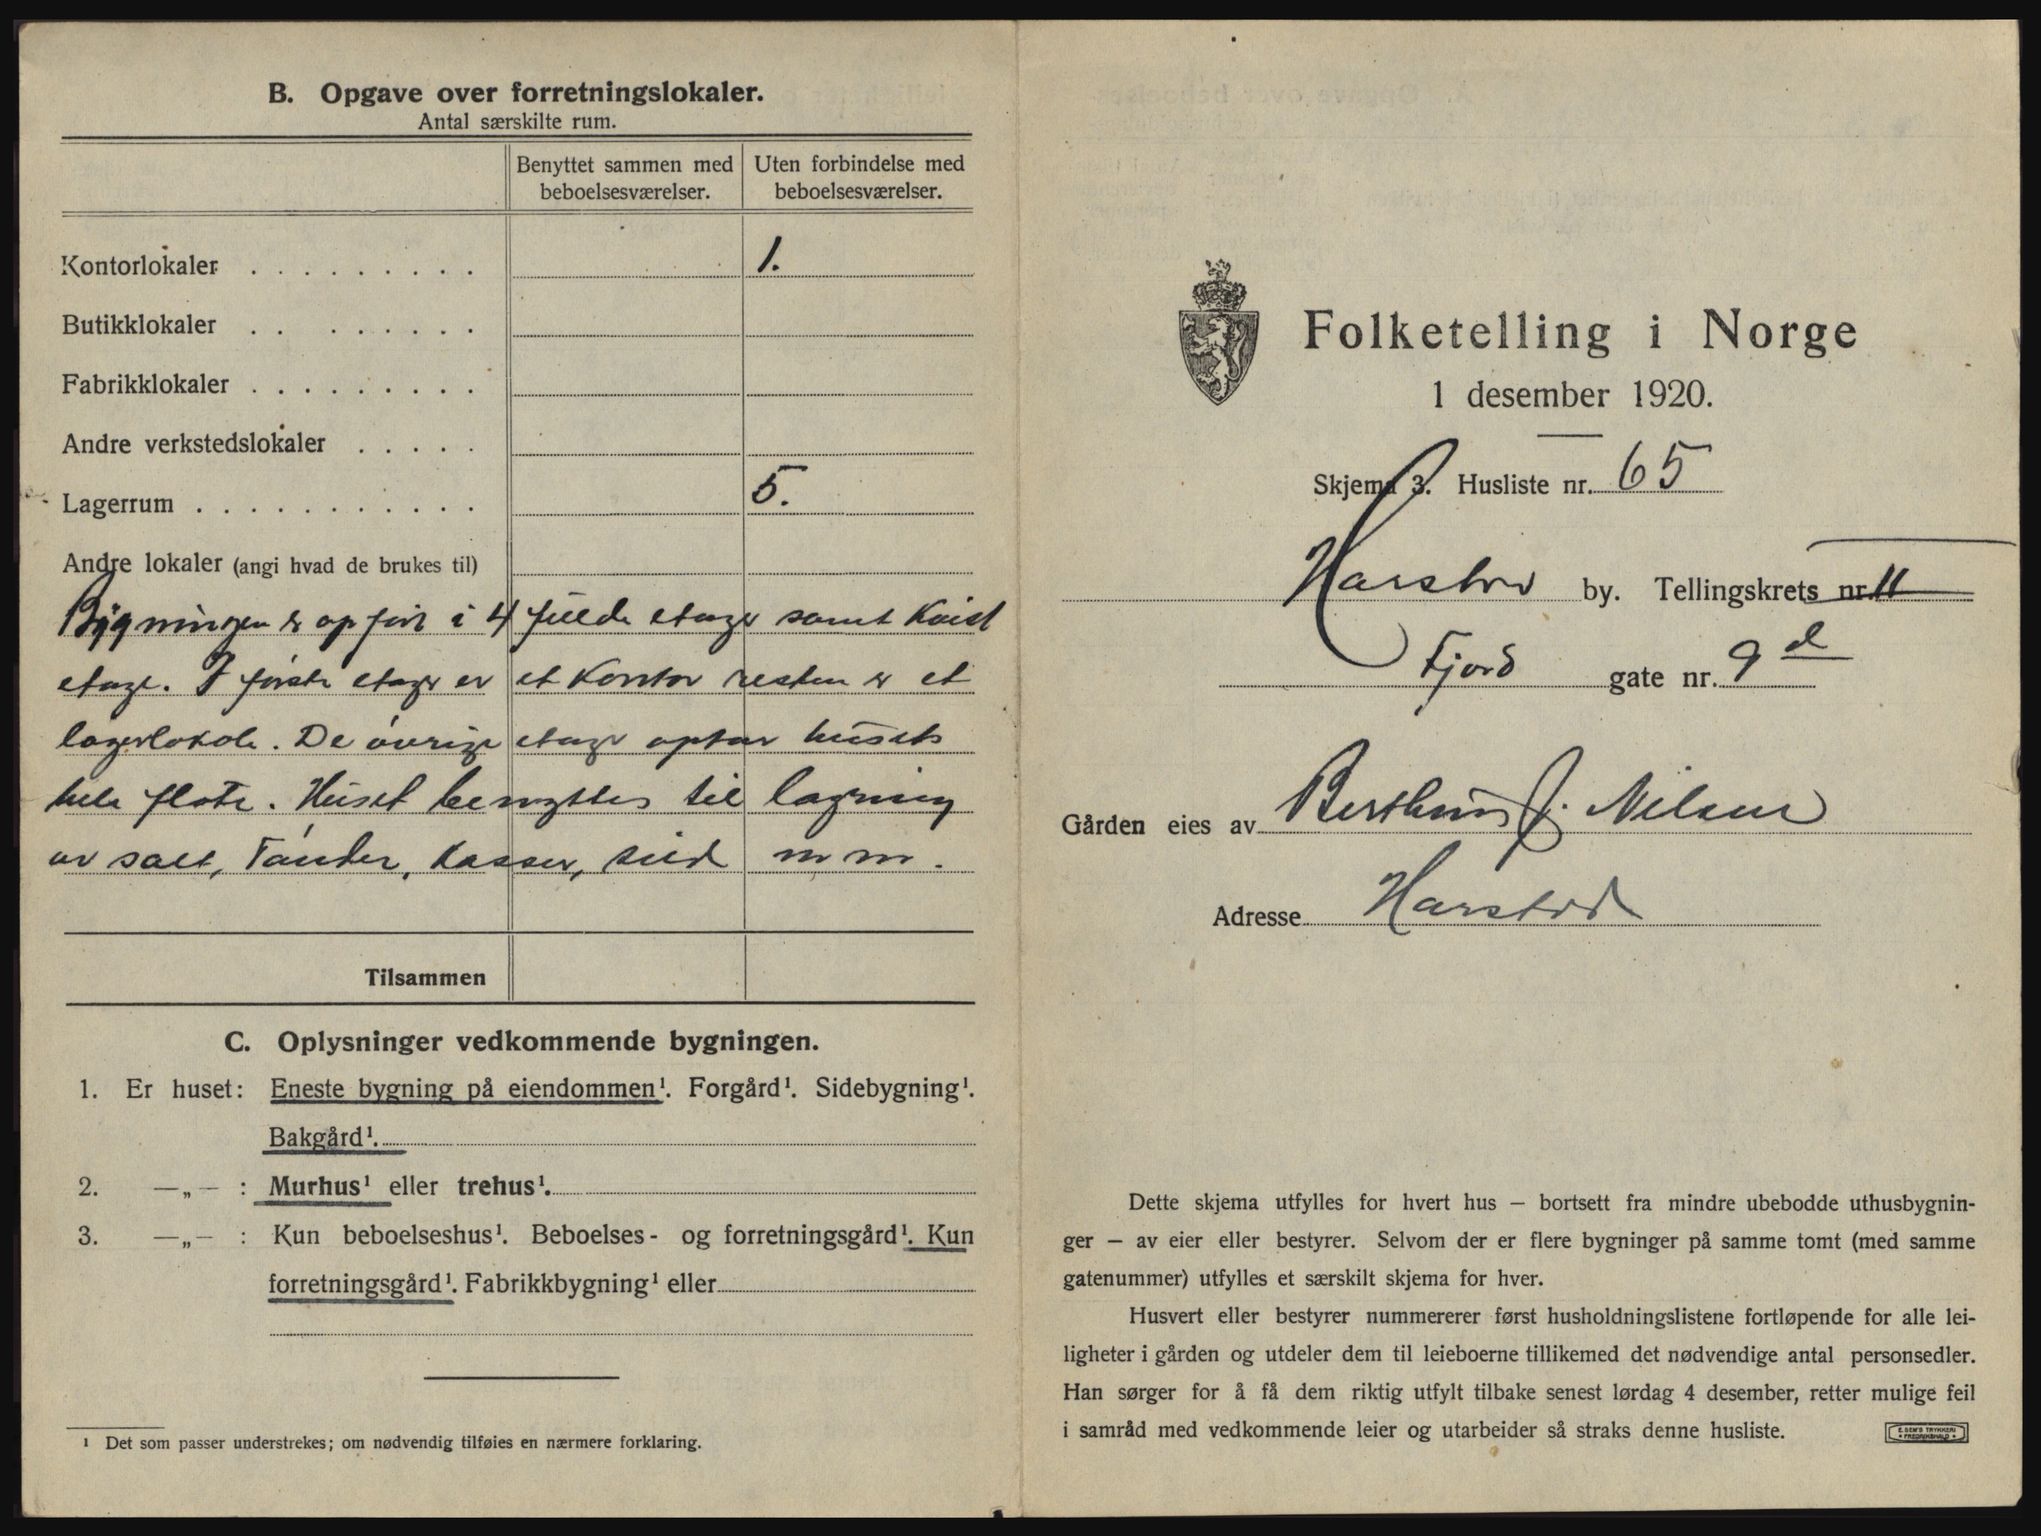 B. Opgave over forretningslokaler.
Antal særskilte rum.
Benyttet sammen med beboelsesværelser.
Uten forbindelse med beboelsesværelser.
Kontorlokaler . . . . . . . . . 1.
Butikklokaler . . . . . . . . .
Fabrikklokaler . . . . . . . . .
Andre verkstedslokaler . . . . .
Lagerrum . . . . . . . . . . . 5.
Andre lokaler (angi hvad de brukes til)
Bygningen er opført i 4 fulde etager samt Kvist
etage. I første etage er et Kontor resten er et
lagerlokale. De øvrige etager optar husets
hele flate. Huset benyttes til lagring
av salt, Tønder, Kasser, sild m m.
Tilsammen
C. Oplysninger vedkommende bygningen.
1. Er huset: Eneste bygning på eiendommen¹. Forgård¹. Sidebygning¹.
Bakgård¹.
2. —„— : Murhus¹ eller trehus¹.
3. —„— : Kun beboelseshus¹. Beboelses- og forretningsgård¹. Kun
forretningsgård¹. Fabrikkbygning¹ eller
¹ Det som passer understrekes; om nødvendig tilføies en nærmere forklaring.
Folketelling i Norge
1 desember 1920.
Skjema 3. Husliste nr. 65
Harstad by. Tellingskrets nr. 11
Fjord gate nr. 9 d
Gården eies av Berthus J. Nilsen
Adresse Harstad
Dette skjema utfylles for hvert hus — bortsett fra mindre ubebodde uthusbygnin-
ger — av eier eller bestyrer. Selvom der er flere bygninger på samme tomt (med samme
gatenummer) utfylles et særskilt skjema for hver.
Husvert eller bestyrer nummererer først husholdningslistene fortløpende for alle lei-
ligheter i gården og utdeler dem til leieboerne tillikemed det nødvendige antal personsedler.
Han sørger for å få dem riktig utfylt tilbake senest lørdag 4 desember, retter mulige feil
i samråd med vedkommende leier og utarbeider så straks denne husliste.
E. SEM'S TRYKKERI
FREDRIKSHALD